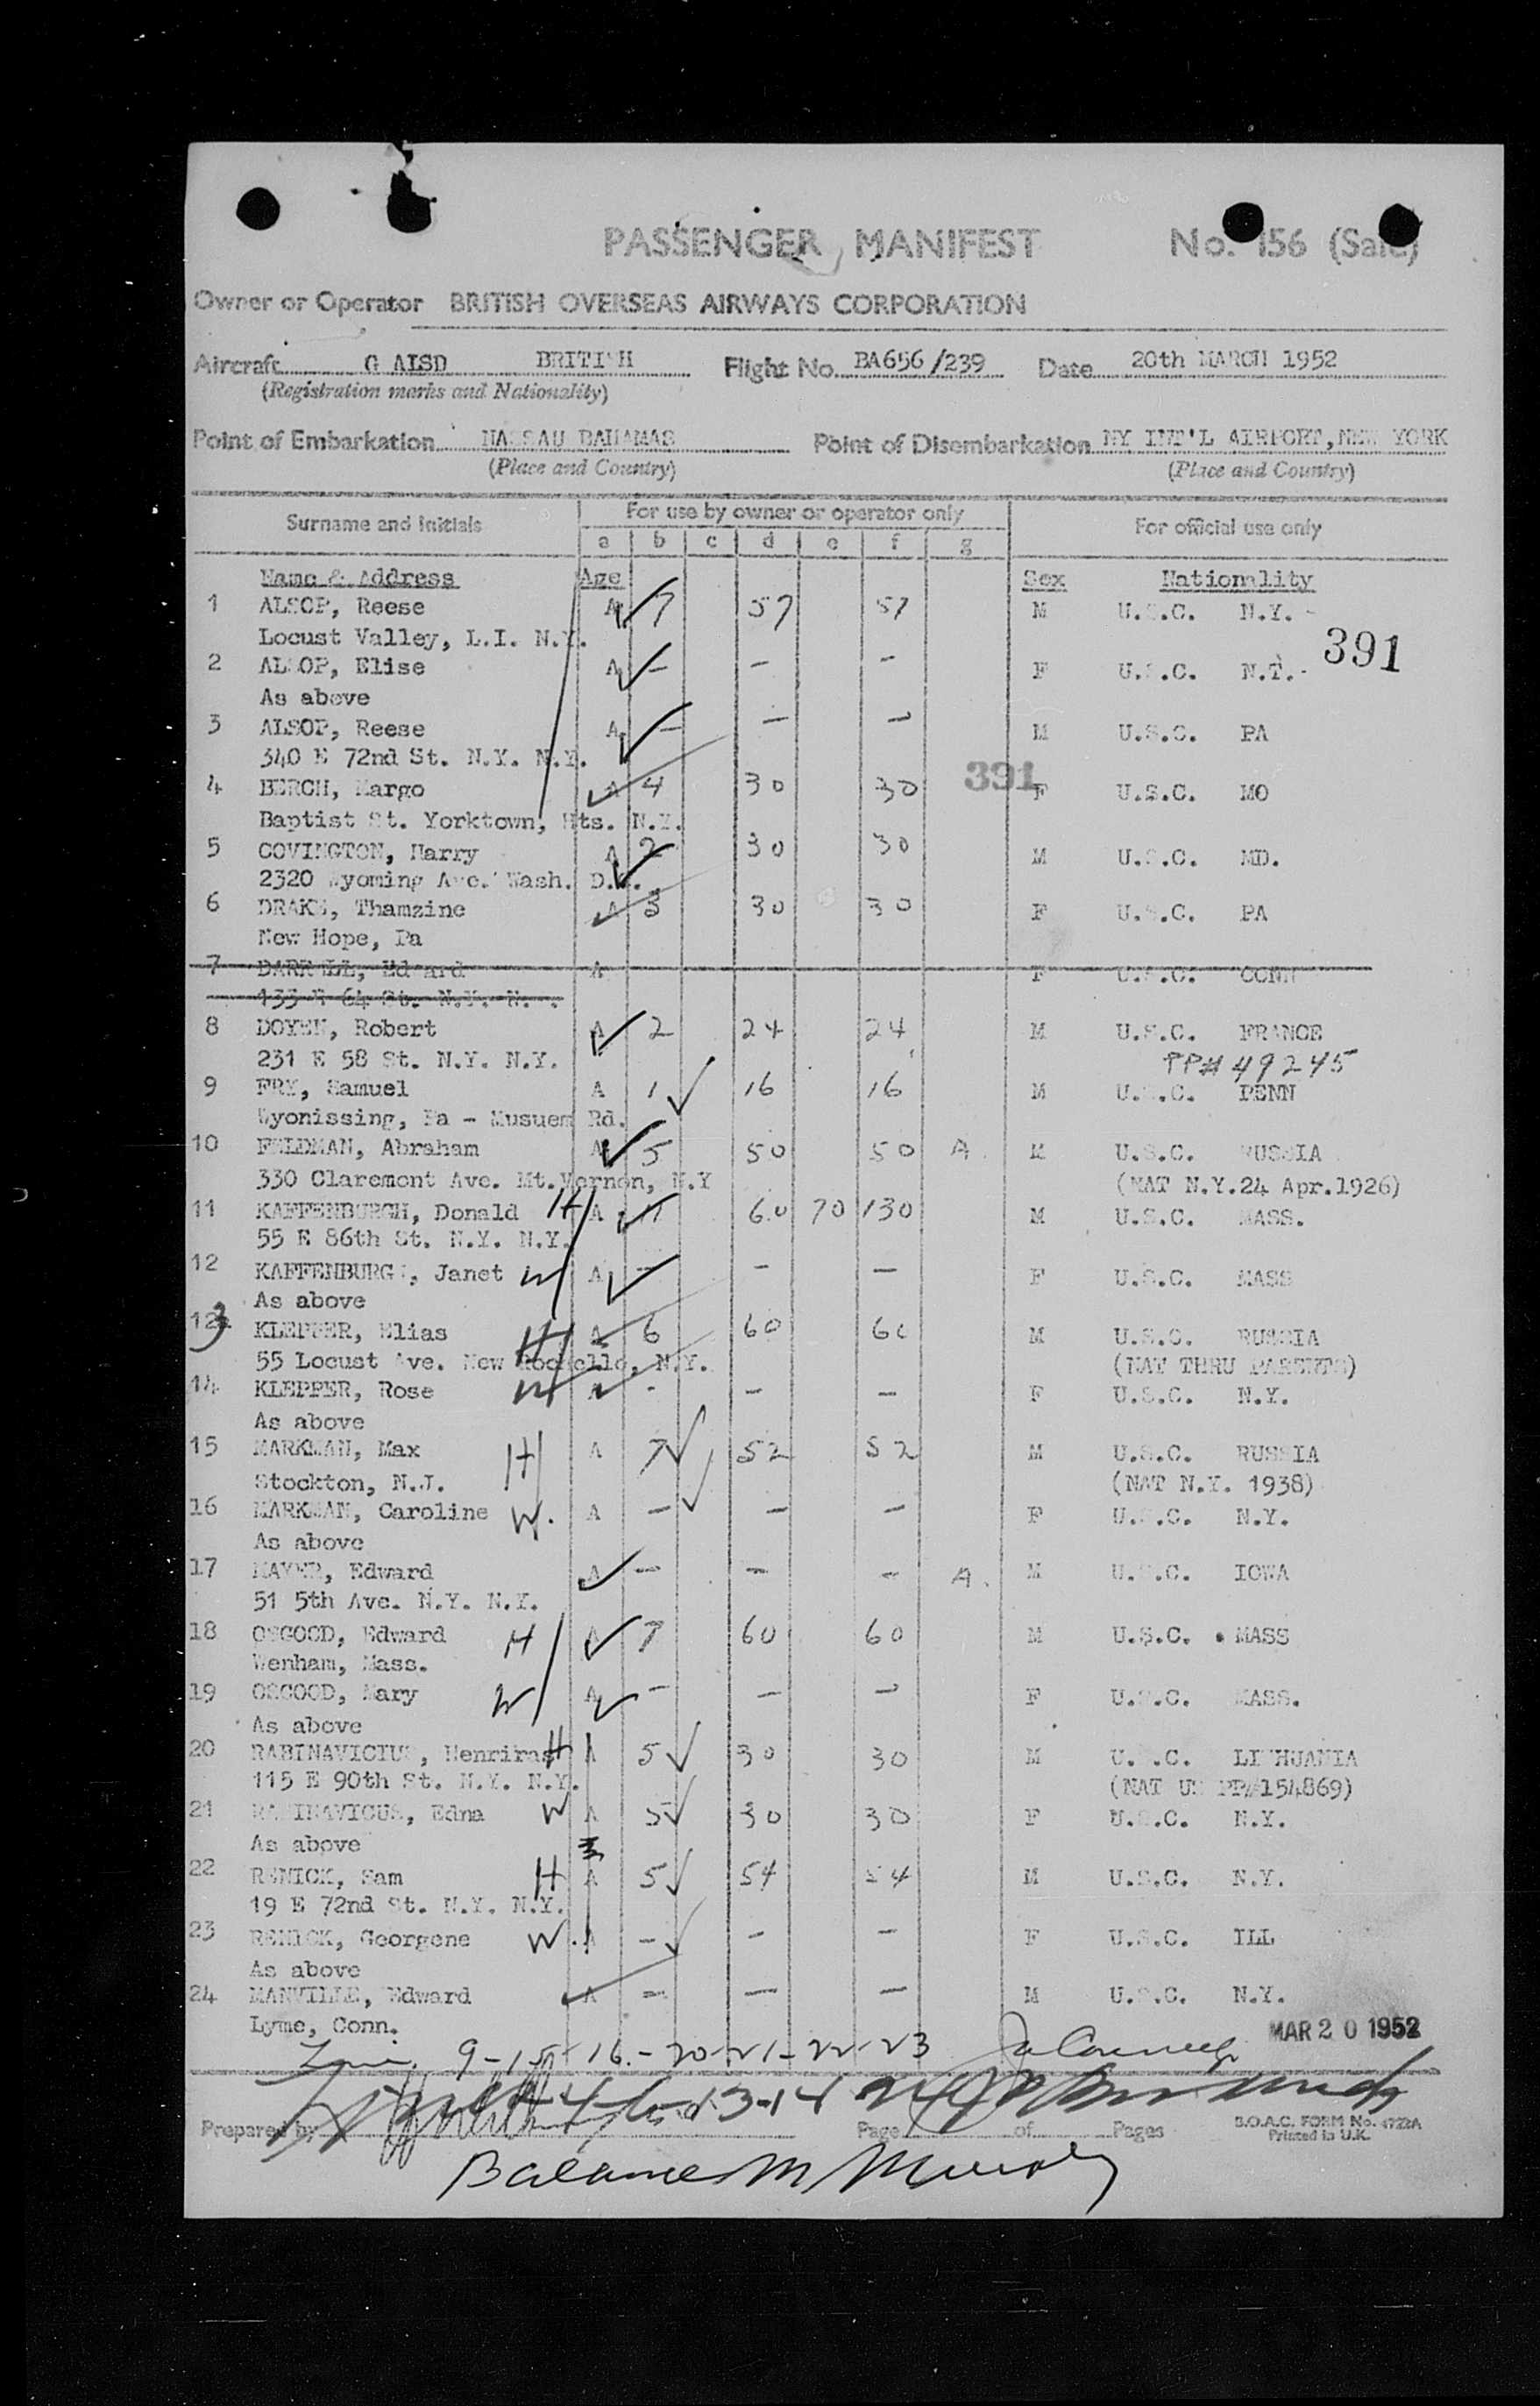 PASSENGER MANIFEST No. 156 (Sale)
Owner or Operator BRITISH OVERSEAS AIRWAYS CORPORATION
Aircraft G ALSD BRITISH Flight No. BA656/239 Date 20th MARCH 1952
(Registration marks and Nationality)
Point of Embarkation NASSAU BAHAMAS Point of Disembarkation NY INT'L AIRPORT, NEW YORK
(Place and Country) (Place and Country)
Surname and Initials For use by owner or operator only For official use only
a b c d e f g
Name & Address Age Sex Nationality
1 ALSOP, Reese A 7 57 57 M U.S.C. N.Y. -
Locust Valley, L.I. N.Y.
391
2 ALSOP, Elise A - - - F U.S.C. N.Y. -
As above
3 ALSOP, Reese A - - - M U.S.C. PA
340 E 72nd St. N.Y. N.Y.
391
4 BERCH, Margo A 4 30 30 F U.S.C. MO
Baptist St. Yorktown, Hts. N.Y.
5 COVINGTON, Harry A 2 30 30 M U.S.C. MD.
2320 Wyoming Ave. Wash. D.C.
6 DRAKE, Thamzine A 3 30 30 F U.S.C. PA
New Hope, Pa
7 Edward A F U.S.C. CONN
135 E 64 St. N.Y. N.Y.
8 DOYEN, Robert A 2 24 24 M U.S.C. FRANCE
231 E 58 St. N.Y. N.Y. PP# 49245
9 FRY, Samuel A 1 16 16 M U.S.C. PENN
Wyonissing, Pa - Musuem Rd.
10 FELDMAN, Abraham A 5 50 50 A. M U.S.C. RUSSIA
330 Claremont Ave. Mt.Vernon, N.Y (NAT N.Y.24 Apr.1926)
11 KAFFENBURGH, Donald H A 11 60 70 130 M U.S.C. MASS.
55 E 86th St. N.Y. N.Y.
12 KAFFENBURGH, Janet W A - - - F U.S.C. MASS
As above
123 KLEPPER, Elias H A 6 60 60 M U.S.C. RUSSIA
55 Locust Ave. New Rochelle, N.Y. (NAT THRU PARENTS)
14 KLEPPER, Rose W A - - - F U.S.C. N.Y.
As above
15 MARKMAN, Max H A 7 52 52 M U.S.C. RUSSIA
Stockton, N.J. (NAT N.Y. 1938)
16 MARKMAN, Caroline W. A - - - F U.S.C. N.Y.
As above
17 MAYER, Edward A - - - A. M U.S.C. IOWA
51 5th Ave. N.Y. N.Y.
18 OSGOOD, Edward H A 7 60 60 M U.S.C. MASS
Wenham, Mass.
19 OSGOOD, Mary W A - - - F U.S.C. MASS.
As above
20 RABINAVICIUS, Henrikas H A 5 30 30 M U.S.C. LITHUANIA
115 E 90th St. N.Y. N.Y. (NAT US PP#154869)
21 RABINAVICUS, Edna W A 5 30 30 F U.S.C. N.Y.
As above
22 RENICK, Sam H A 5 54 54 M U.S.C. N.Y.
19 E 72nd St. N.Y. N.Y.
23 RENICK, Georgene W. A - - - F U.S.C. ILL
As above
24 MANVILLE, Edward A - - - M U.S.C. N.Y.
Lyme, Conn.
MAR 20 1952
9-15-16-20-21-22-23
4-6-13-14 24
Prepared by Page of Pages B.O.A.C. FORM No. 4722A
Printed in U.K.
Balance M